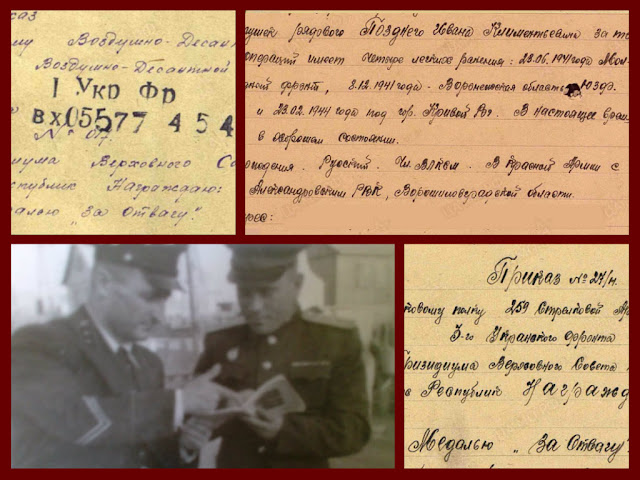 каз
му Воздушно-Десант
Воздушно-Десантной
I Укр Фр
вх05577 454
№ 07
иума Верховного Со
спублик Награждаю:
далью "За Отвагу".
рядового Позднего Ивана Климентьевича за то
операций имеет четыре легкие ранения: 23.06.1941 года Мол-
дной фронт, 3.12.1941 года - Воронежская область ЮЗФ.
и 23.02.1944 года под гор. Кривой Рог. В настоящее врем
в хорошем состоянии.
рождения. Русский. Чл. ВЛКСМ. В Красной Армии с
Александровским РВК, Ворошиловградской области.
Приказ № 27/н.
ковому полку 259 Стрелковой
3-го Украинского фронта
Президиума Верховного Совета
Республик Награжд
Медалью „За Отвагу"